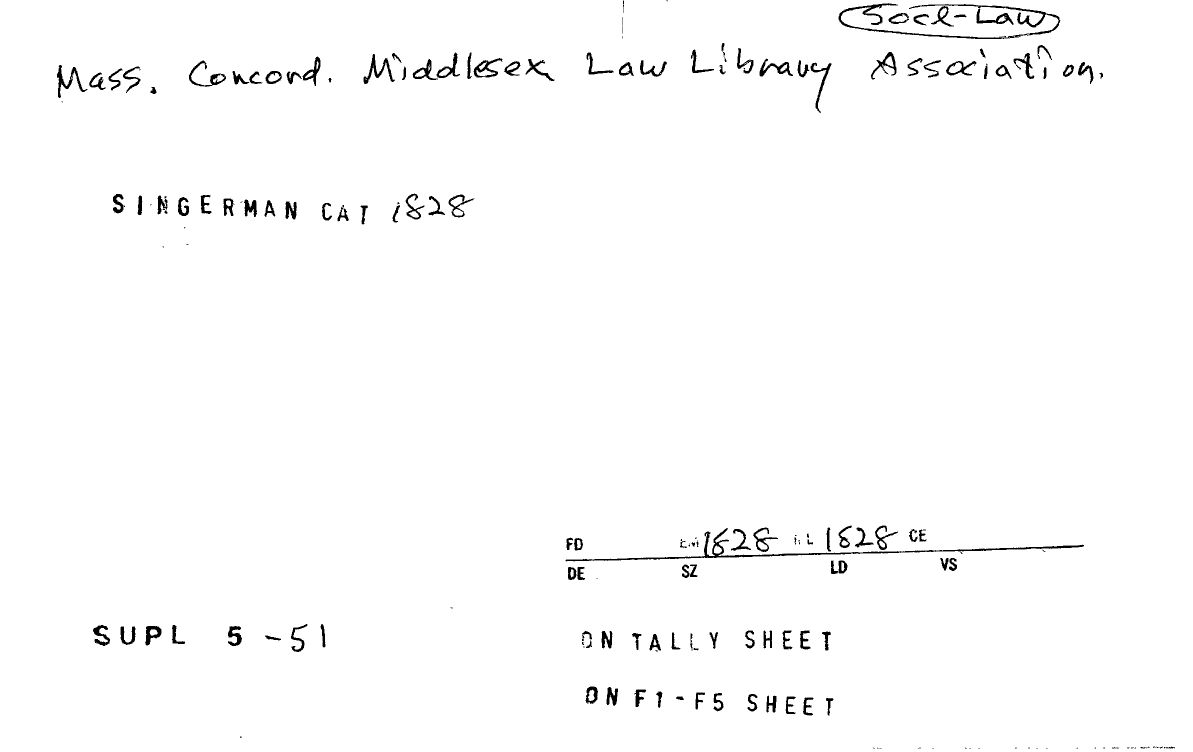 Socl-Law
Mass. Concord. Middlesex Law Library Association.
SINGERMAN CAT 1828
FD EM 1828 1828 CE
DE SZ LD VS
SUPL 5-51
ON TALLY SHEET
ON F1-F5 SHEET